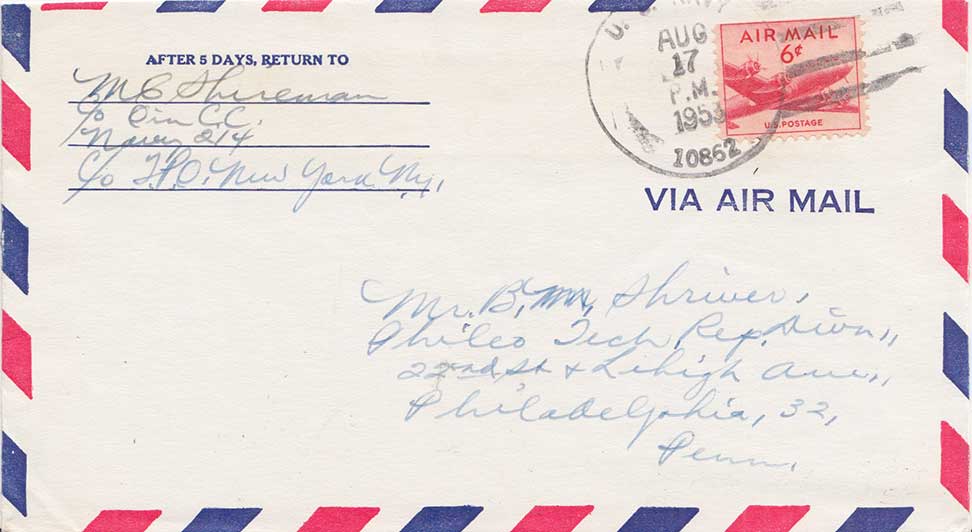 AFTER 5 DAYS, RETURN TO
M C Shireman
c/o Cin C.C.
Navy 214
c/o F.P.O. New York N.Y.
U. S. NAVY
AUG
17
P.M.
1953
10862
AIR MAIL
6¢
U.S. POSTAGE
VIA AIR MAIL
Mr. B. M. Shriver,
Philco Tech. Rep. Divn.,
22nd St & Lehigh Ave.,
Philadelphia, 32,
Penn.